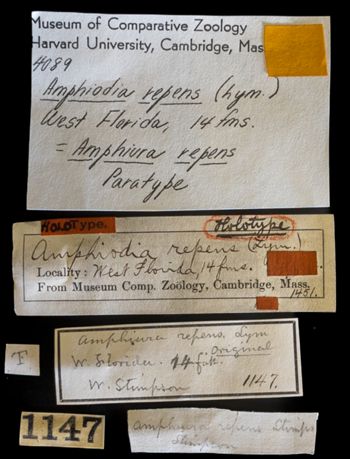 Museum of Comparative Zoology
Harvard University, Cambridge, Mass
4089
Amphiodia repens (Lym.)
West Florida, 14 fms.
= Amphiura repens
Paratype
HOLOType.
Holotype
Amphiodia repens (Lym.)
Locality: West Florida, 14 fms.
From Museum Comp. Zoölogy, Cambridge, Mass.
1451.
Amphiura repens, Lym
Original
W. Florida. 14 fath.
W. Stimpson
1147.
T
1147
Amphiura repens Stimps
Stimpson